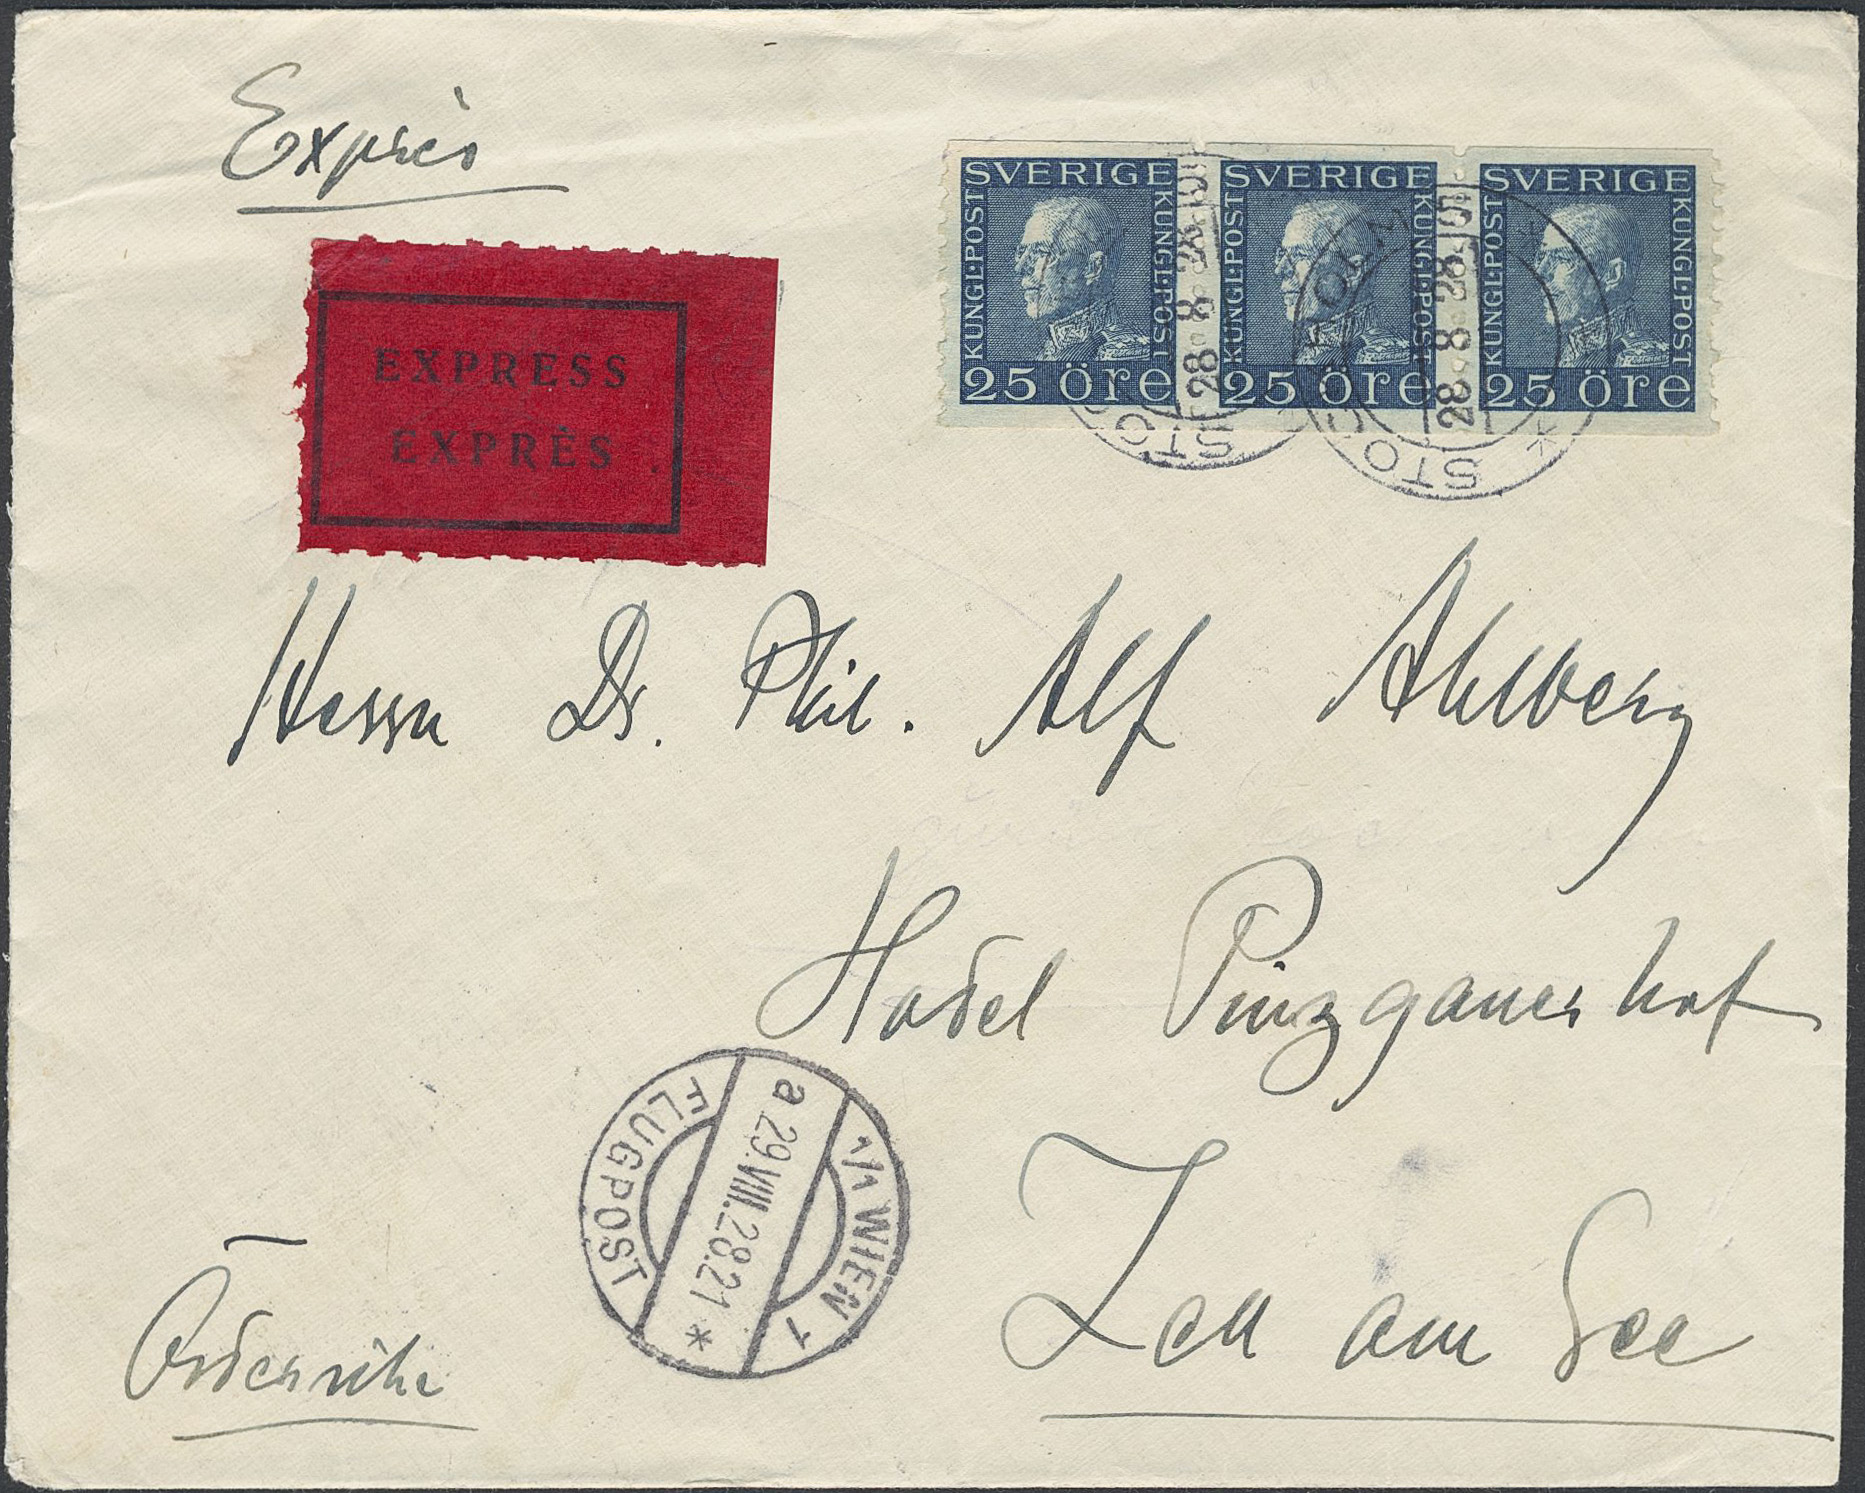 Exprès
SVERIGE SVERIGE SVERIGE
KUNGL·POST KUNGL·POST KUNGL·POST KUNGL·POST KUNGL·POST KUNGL·POST
25 öre 25 öre 25 öre
STO
28 8 28 10
STOCKHOLM
28 8 28 10
EXPRESS
EXPRÈS
Herrn Dr. Phil. Alf Ahlberg
Hotel Pinzgauerhof
Zell am See
Österriche
1/1 WIEN 1
a 29.VIII.28.21 *
FLUGPOST